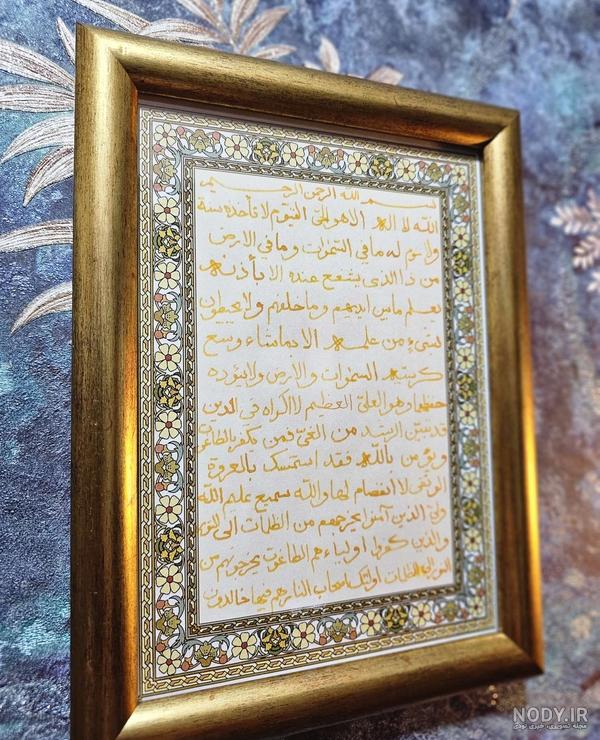 بسم الله الرحمن الرحیم
الله لا اله الا هو الحی القیوم لا تأخذه سنة
ولا نوم له ما فی السموات وما فی الارض
من ذا الذی یشفع عنده الا بأذنه
یعلم ما بین ایدیهم وما خلفهم ولا یحیطون
بشیء من علمه الا بما شاء وسع
کرسیه السموات والارض ولا یؤده
حفظهما وهو العلی العظیم لا اکراه فی الدین
قد تبین الرشد من الغی فمن یکفر بالطاغوت
ویؤمن بالله فقد استمسک بالعروة
الوثقی لا انفصام لها والله سمیع علیم الله
ولی الذین آمنوا یخرجهم من الظلمات الی النور
والذین کفروا اولیاءهم الطاغوت یخرجونهم من
النور الی الظلمات اولئک اصحاب النار هم فیها خالدون
NODY.IR
مجله تصویری، خبری نودی